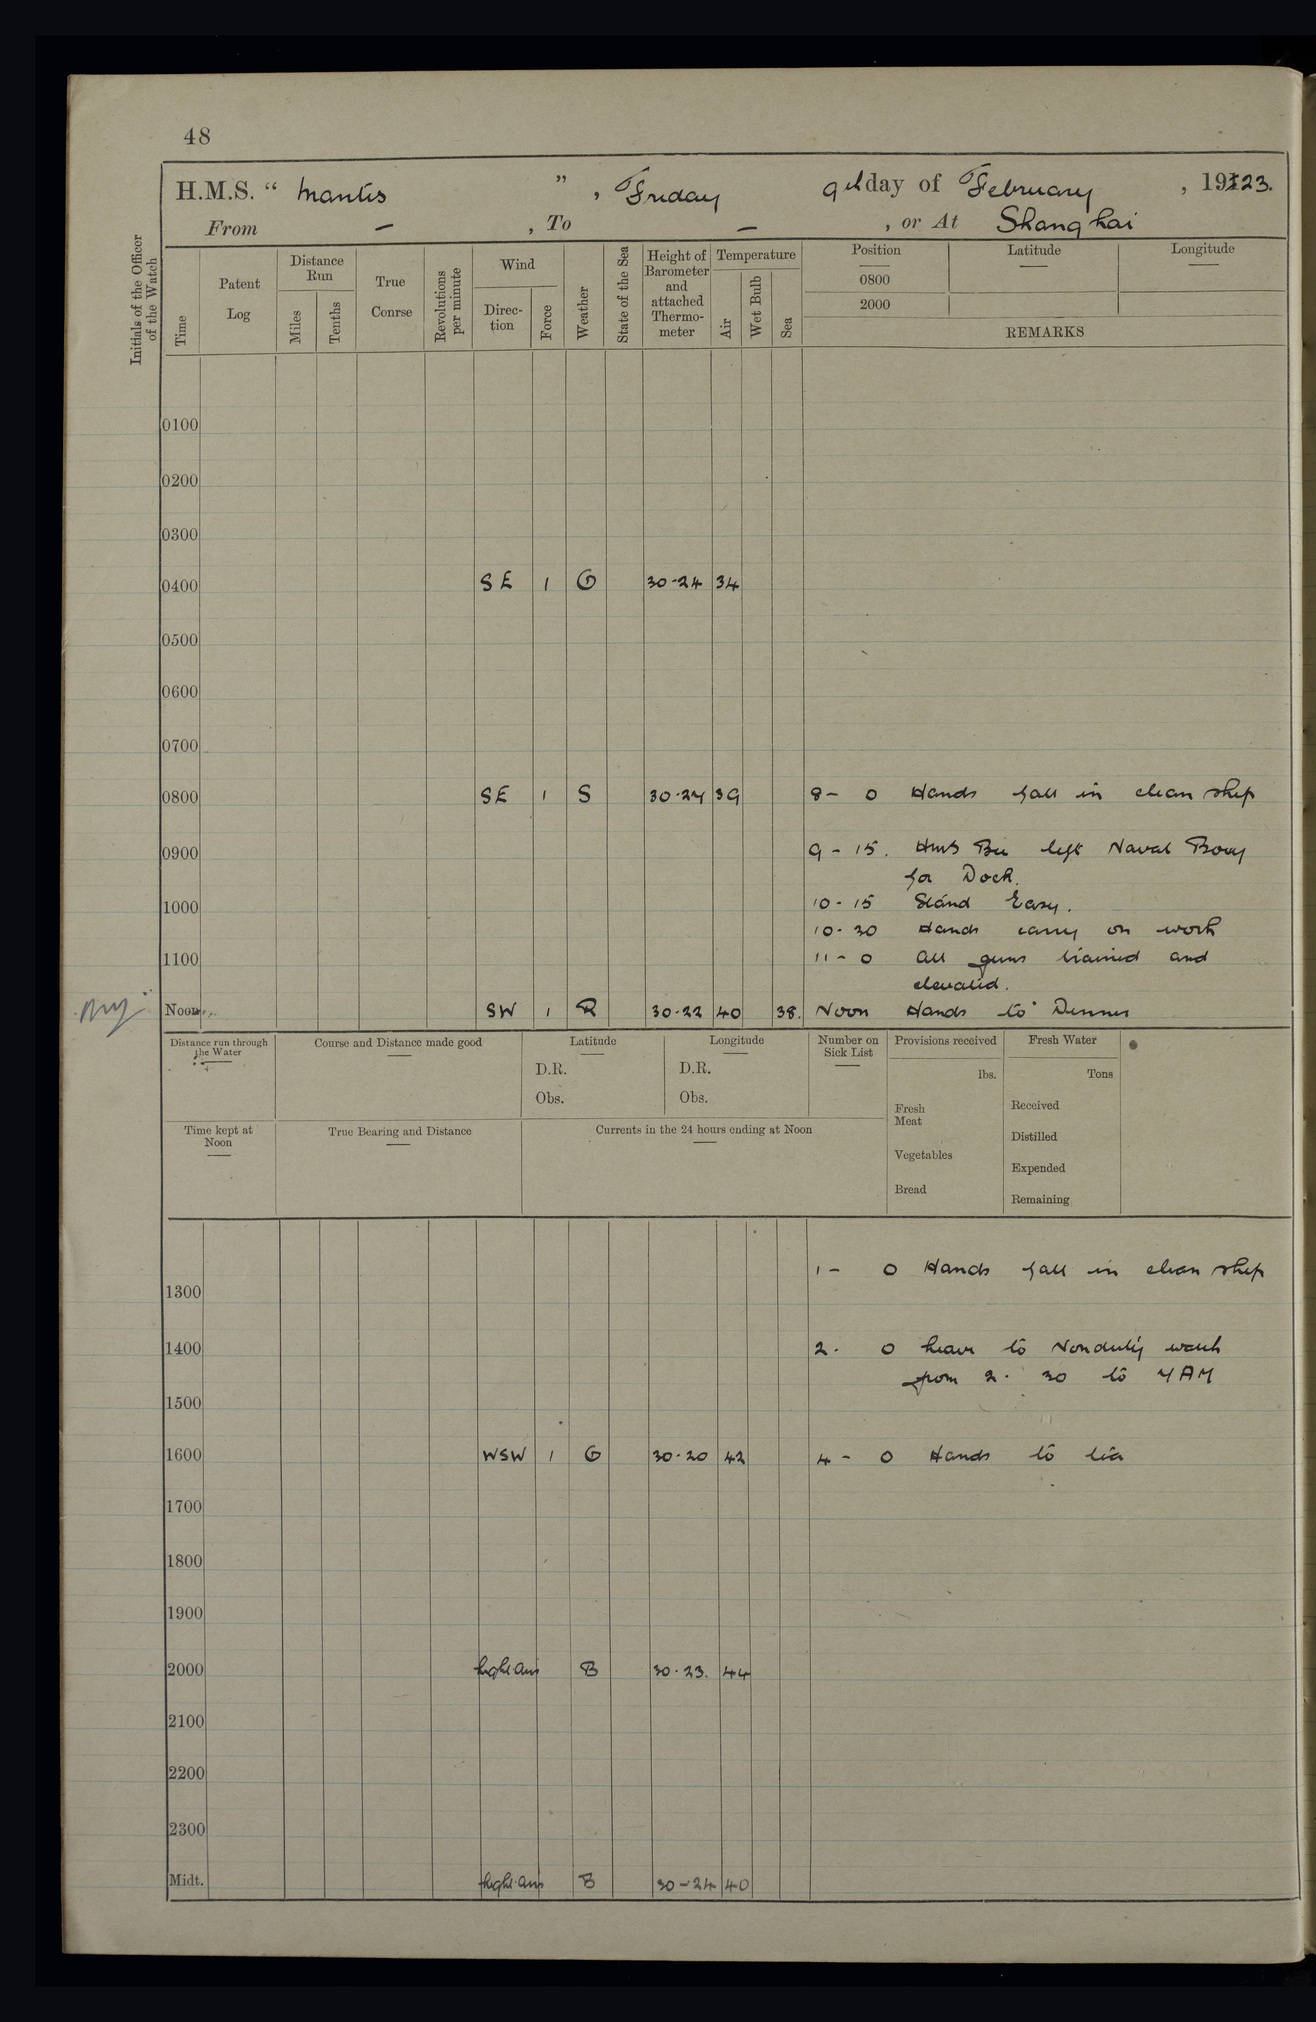 48
H.M.S. “ Mantis ” , Friday 9th day of February , 1923.
From - , To - , or At Shanghai
Initials of the Officer of the Watch
Time
Patent Log
Distance Run
Miles
Tenths
True Conrse
Revolutions per minute
Wind
Direc-tion
Force
Weather
State of the Sea
Height of Barometer and attached Thermo-meter
Temperature
Air
Wet Bulb
Sea
Position Latitude Longitude
0800
2000
REMARKS
0100
0200
0300
0400 SE 1 G 30-24 34
0500
0600
0700
0800 SE 1 S 30.24 39 8- 0 Hands fall in clean ship
0900 9-15. HMS Bee left Naval Bouy
for Dock.
1000 10-15 Stand Easy.
10-30 Hands carry on work
1100 11-0 All guns trained and
elevated.
Noon SW 1 R 30-22 40 38. Noon Hands to Dinner
Distance run through the Water
Course and Distance made good
Latitude
D.R.
Obs.
Longitude
D.R.
Obs.
Number on Sick List
Provisions received
lbs.
Fresh Meat
Vegetables
Bread
Fresh Water
Tons
Received
Distilled
Expended
Remaining
Time kept at Noon
True Bearing and Distance
Currents in the 24 hours ending at Noon
1- 0 Hands fall in clean ship
1300
1400 2. 0 Leave to Nonduty watch
from 2. 30 to 7 AM
1500
1600 WSW 1 G 30-20 42 4- 0 Hands to tea
1700
1800
1900
2000 light airs B 30.23. 44
2100
2200
2300
Midt. light airs B 30-24 40